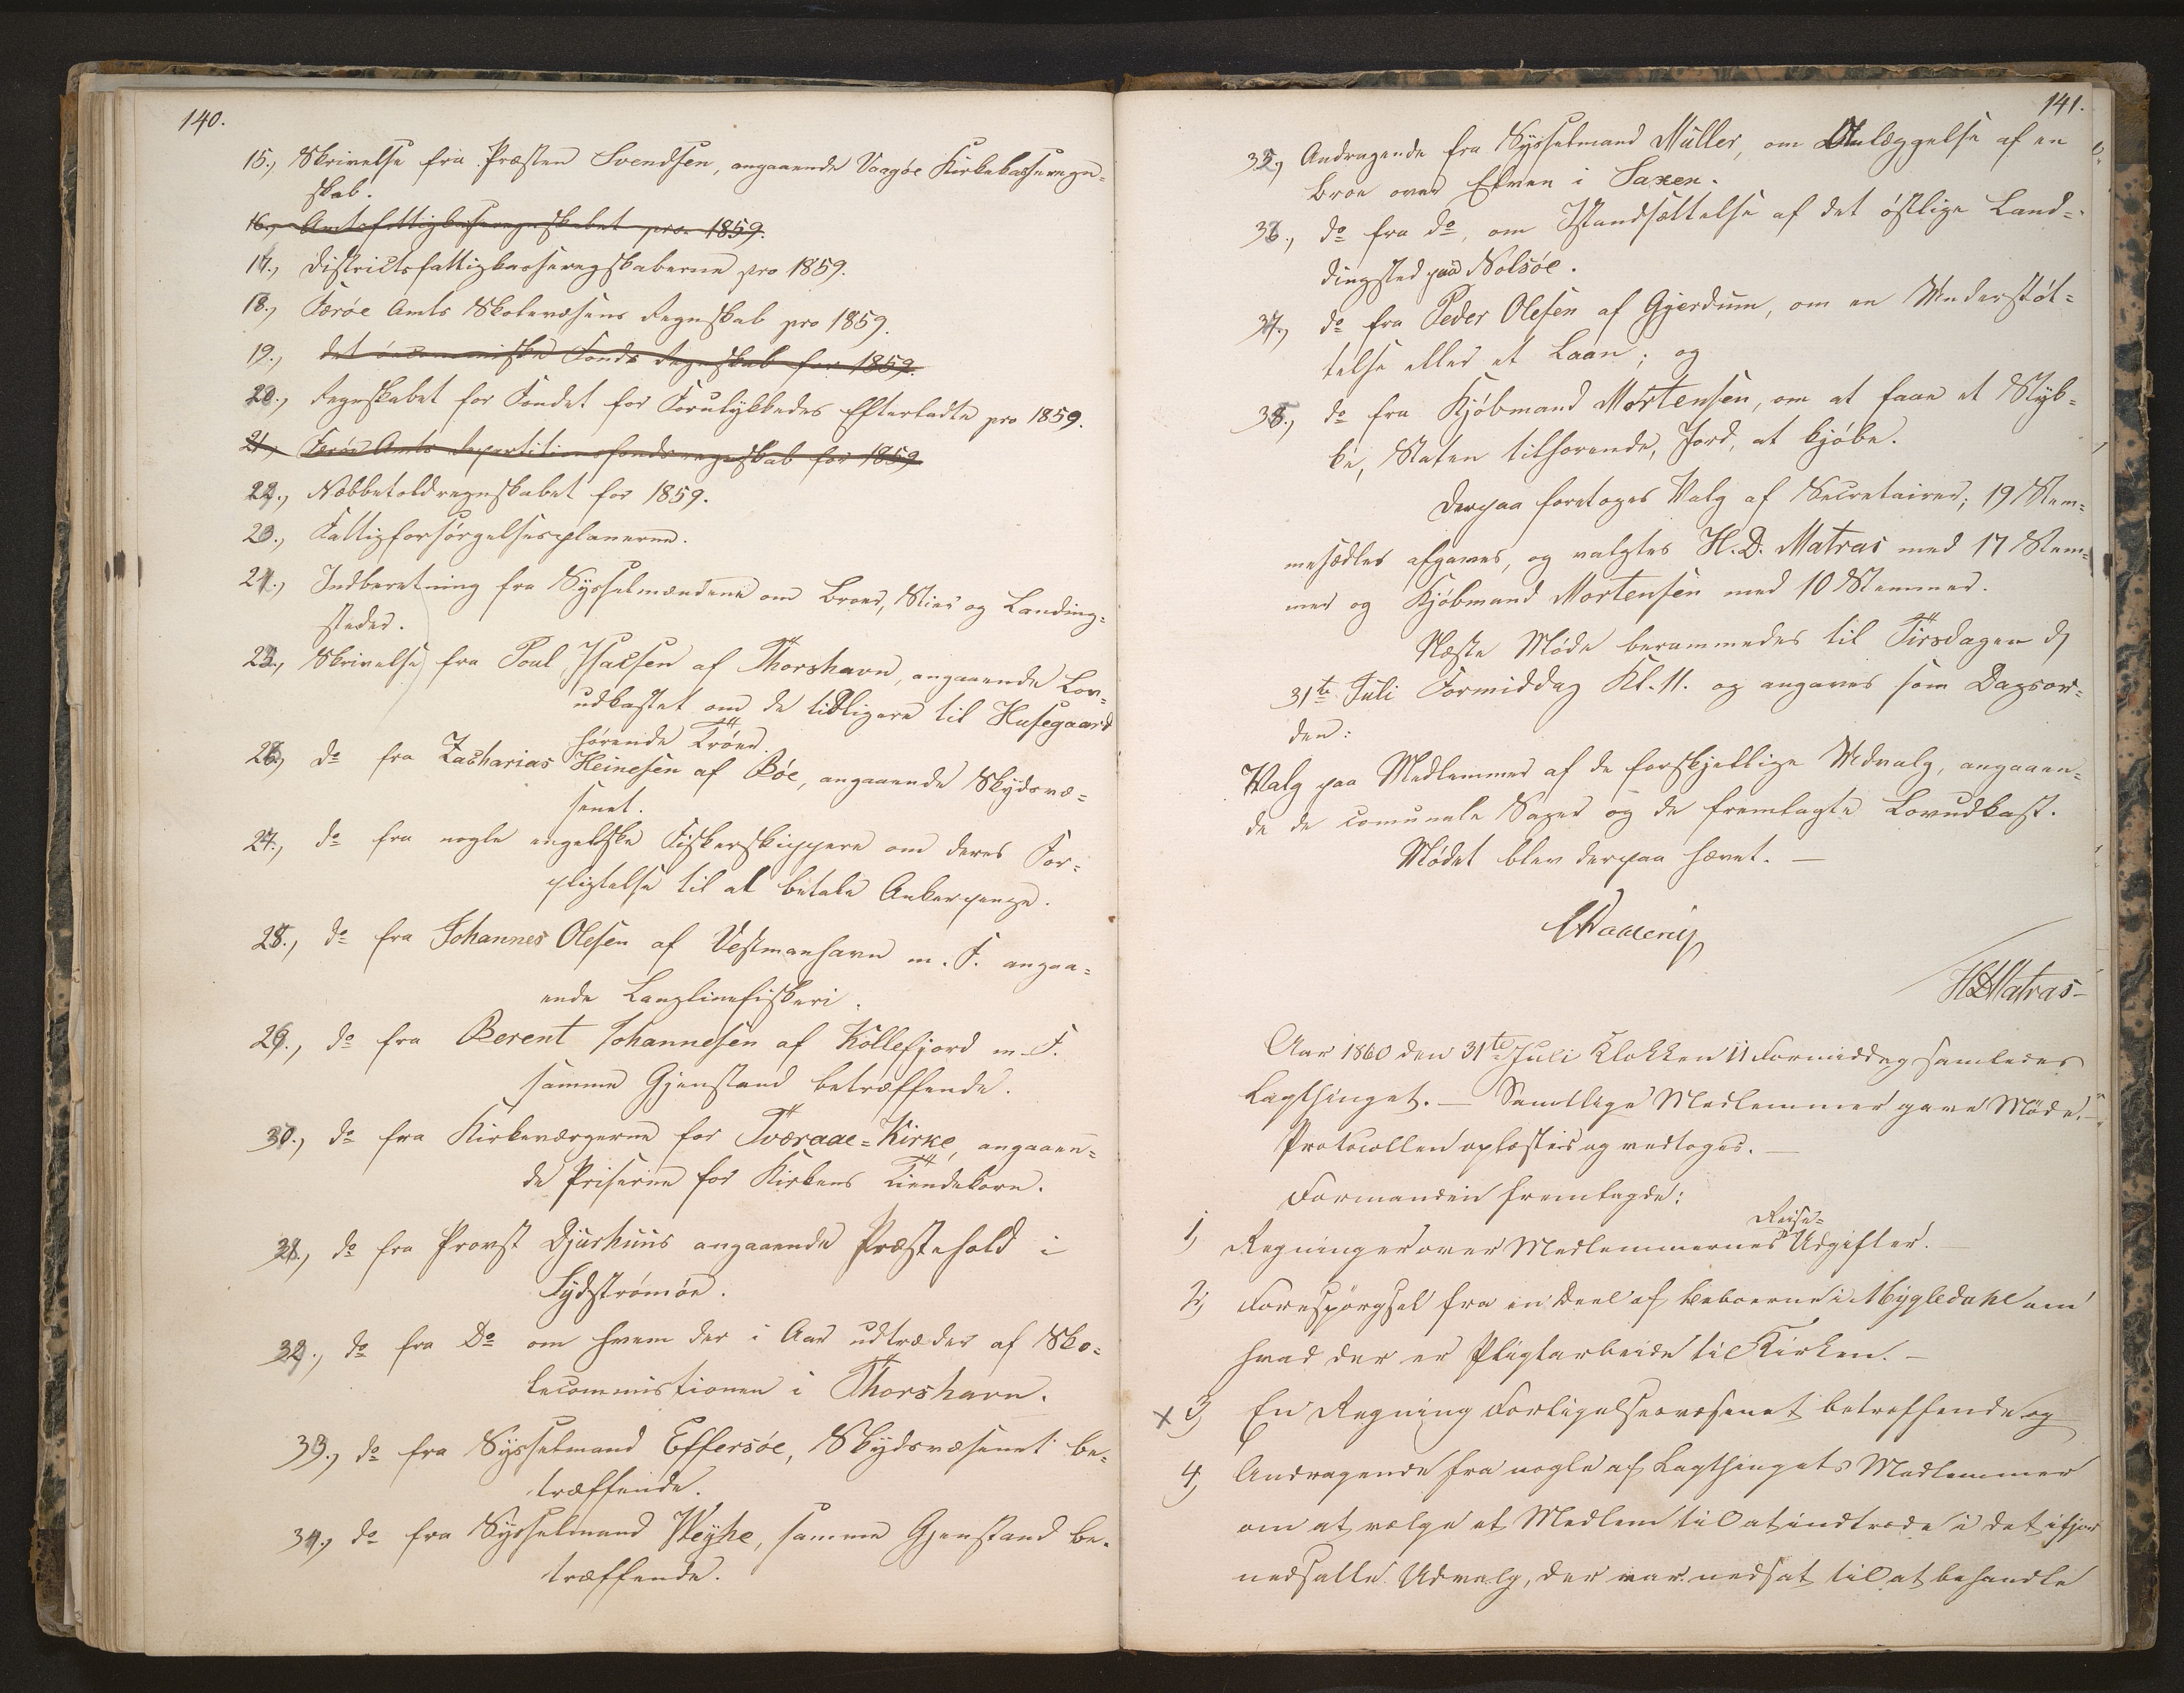 140.
15., Skrivelse fra Præsten Svendsen, angaaende Vaagøe Kirkekasseregn=
skab.
16., Amtsfattigkasseregnskabet pro 1859.
17., Districtsfattigkasseregskaberne pro 1859.
18., Færøe Amts Skolevæsens Regnskab pro 1859.
19., det oeconomiske Fonds Regnskab for 1859.
20., Regnskabet for Fondet for Forulykkedes Efterladte pro 1859.
21., Færøe Amts Repartitionsfondsregnskab for 1859
22., Næbbetoldregnskabet for 1859.
23., Fattigforsørgelsesplanerne.
24., Indberetning fra Sysselmændene om Broer, Stier og Landing=
steder.
25., Skrivelse fra Poul Isaksen af Thorshavn, angaaende Lov=
udkastet om de tidligere til Husegaard
hørende Trøer.
26., do fra Zacharias Heinesen af Bøe, angaaende Skydsvæ=
senet.
27., do fra nogle engelske Fiskerskippere om deres For=
pligtelse til at betale Ankerpenge.
28., do fra Johannes Olesen af Vestmanhavn m. F. angaa=
ende Langlinefiskeri.
29., do fra Berent Johannesen af Kollefjord m. F.
samme Gjenstand betræffende.
30., do fra Kirkeværgerne for Tværaae=Kirke, angaaen=
de Priserne for Kirkens Tiendekorn.
31., do fra Provst Djurhuus angaaende Præstehold i
Sydstrømøe.
32., do fra Do om hvem der i Aar udtræder af Sko=
lecommistionen i Thorshavn.
33., do fra Sysselmand Effersøe, Skydsvæsenet be=
træffende.
34., do fra Sysselmand Weyhe, samme Gjenstand be=
træffende.
141.
35., Andragende fra Sysselmand Müller, om Anlæggelse af en
Broe over Elven i Saxen.
36., do fra do, om Istandsættelse af det østlige Land=
dingsted paa Nolsøe.
37., do fra Peder Olesen af Gjerdum, om en Understøt=
telse eller et Laan; og
38., do fra Kjøbmand Mortensen, om at faae et Styk=
ke, Staten tilhørende, Jord, at kjøbe.
Derpaa foretoges Valg af Secretairer; 19 Stem=
mesedler afgaves, og valgtes H. D. Matras med 17 Stem=
mer og Kjøbmand Mortensen med 10 Stemmer.
Næste Møde berammedes til Tirsdagen d
31te Juli Formiddag Kl. 11. og angaves som Dagsor=
den:
Valg paa Medlemmer af de forskjellige Udvalg, angaaen=
de de comunale Sager og de fremlagte Lovudkast.
Mødet blev derpaa hævet. —
HDMatras—
Aar 1860 den 31te Juli Klokken 11 Formiddag samledes
Lagthinget. — Samtlige Medlemmer gave Møde. —
Protocollen oplæstes og vedtoges. —
Formanden fremlagde:
1, Regninger over Medlemmernes Reise= Udgifter.
2, Forespørgsel fra en Deel af Beboerne i Mygledahl om
hvad der er Pligtarbeide til Kirken. —
x 3, En Regning Forligelsesvæsenet betræffende og
4, Andragende fra nogle af Lagthingets Medlemmer
om at vælge et Medlem til at indtræde i det ifjor
nedsatte Udvalg, der var nedsat til at behandle